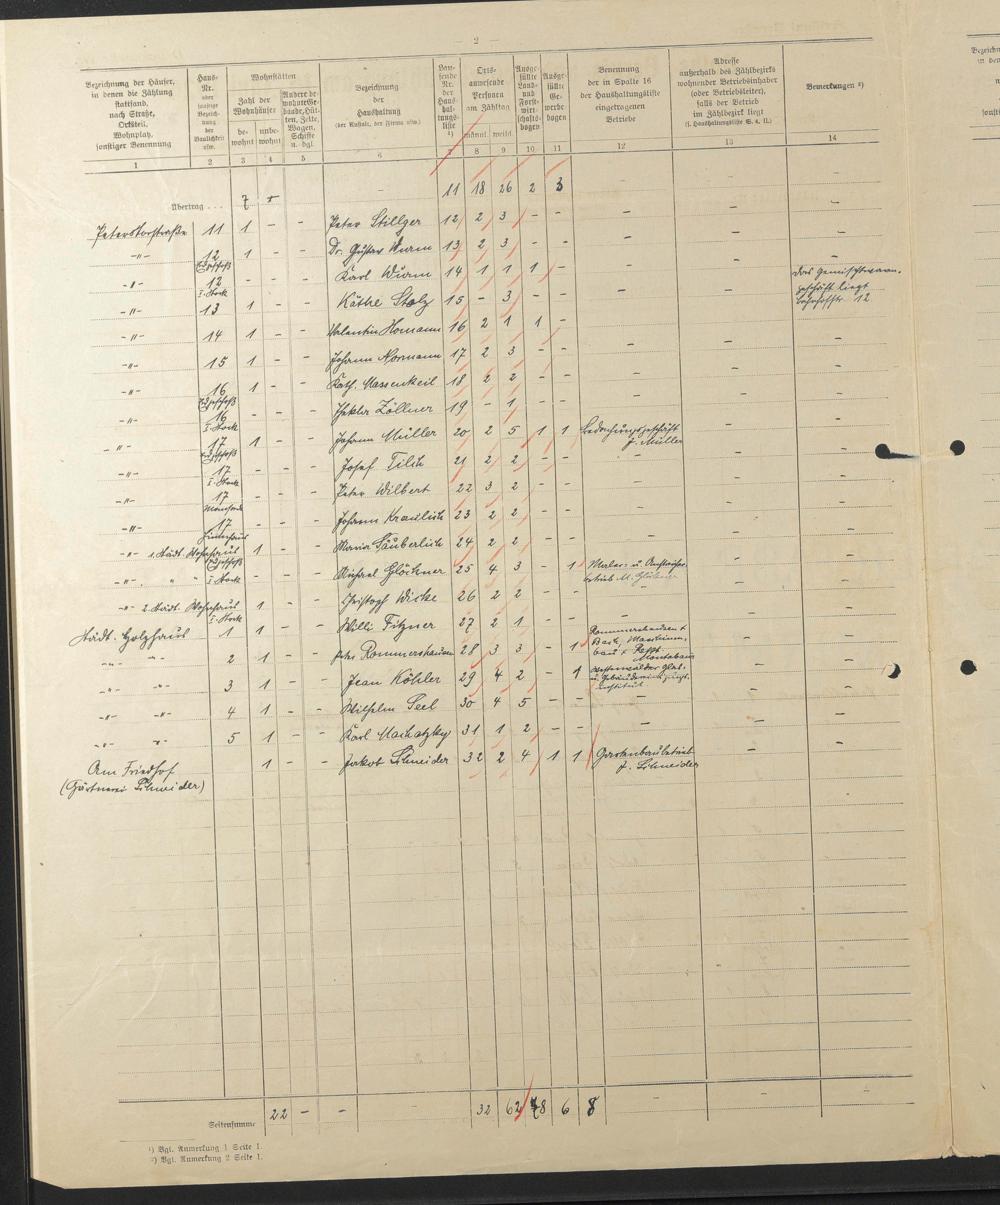 — 2 —
Bezeichnung der Häuser,
in denen die Zählung
stattfand,
nach Straße,
Ortsteil,
Wohnplatz,
sonstiger Benennung
Haus-
Nr.
oder
sonstige
Bezeich-
nung
der
Baulichkeit
usw.
Wohnstätten
Zahl der
Wohnhäuser
be-
wohnt
unbe-
wohnt
Andere be-
wohnte Ge-
bäude, Hüt-
ten, Zelte,
Wagen,
Schiffe
u. dgl.
Bezeichnung
der
Haushaltung
(der Anstalt, der Firma usw.)
Lau-
fende
Nr.
der
Haus-
hal-
tungs-
liste
¹)
Orts-
anwesende
Personen
am Zähltag
männl. weibl.
Ausge-
füllte
Land-
und
Forst-
wirt-
schafts-
bogen
Ausge-
füllte
Ge-
werbe-
bogen
Benennung
der in Spalte 16
der Haushaltungsliste
eingetragenen
Betriebe
Adresse
außerhalb des Zählbezirks
wohnender Betriebsinhaber
(oder Betriebsleiter),
falls der Betrieb
im Zählbezirk liegt
(s. Haushaltungsliste S. 4, II.)
Bemerkungen ²)
1 2 3 4 5 6 7 8 9 10 11 12 13 14
Übertrag . . . 7 — 11 18 26 2 3 — — —
Peterstorstraße 11 1 - - Peter Stillger 12 2 3 - - — — —
-"- 12 Erdgeschoß 1 - - Dr. Gustav Wurm 13 2 3 - - — — —
-"- 12 I. Stock - - - Karl Wurm 14 1 1 1 - — — Das Gemischtwaren-
geschäft liegt
Bahnhofstr. 12
-"- 13 1 - - Käthe Stolz 15 - 3 - - — —
-"- 14 1 - - Valentin Homann 16 2 1 1 - — — —
-"- 15 1 - - Johann Normann 17 2 3 - - — — —
-"- 16 Erdgeschoß 1 - - Kath. Massenkeil 18 2 2 - - — — —
-"- 16 I. Stock - - - Zöllner 19 - 1 - - — — —
-"- 17 Erdgeschoß 1 - - Johann Müller 20 2 5 1 1 Bedachungsgeschäft
J. Müller — —
-"- 17 I. Stock - - - Josef Tilch 21 2 2 - - — — —
-"- 17 Mansarde - - - Peter Wilbert 22 3 2 - - — — —
-"- 17 Hinterhaus - - - Johann Kraulich 23 2 2 - - — — —
-"- 1. Städt. Wohnhaus Erdgeschoß 1 - - Maria Säuberlich 24 2 2 - - — — —
-"- " " I. Stock - - - Michael Glöckner 25 4 3 - 1 Maler- u. Anstreicher-
betrieb M. Glöckner — —
-"- 2. Städt. Wohnhaus I. Stock 1 - - Christoph Wicke 26 2 2 - - — — —
Städt. Holzhaus 1 1 - - Willi Fitzner 27 2 1 - - — — —
-"- -"- 2 1 - - Rommershausen 28 3 3 - 1 Rommershausen +
Bast, Maschinen-
bau + Rept.
Montabaur — —
-"- -"- 3 1 - - Jean Köhler 29 4 2 - 1 Westerwälder Glas-
u. Gebäudereinigungs-
institut — —
-"- -"- 4 1 - - Wilhelm Seel 30 4 5 - - — — —
-"- -"- 5 1 - - Karl Machatzky 31 1 2 - - — — —
Am Friedhof 1 - - Jakob Schneider 32 2 4 1 1 Gartenbaubetrieb
J. Schneider — —
(Gärtnerei Schneider)
Seitensumme 22 — — — 32 62 78 6 8 — — —
¹) Vgl. Anmerkung 1 Seite 1.
²) Vgl. Anmerkung 2 Seite 1.